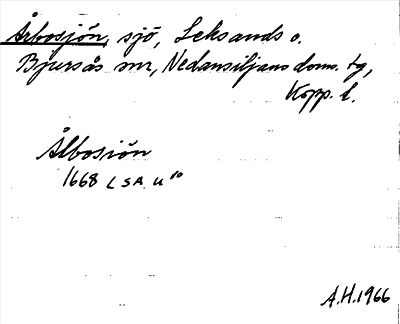 Årbosjön, sjö, Leksands o.
Bjursås snr, Nedansiljans doms. tg,
Kopp. l.
Ålbosiön
1668 LSA U¹⁰
A.H. 1966